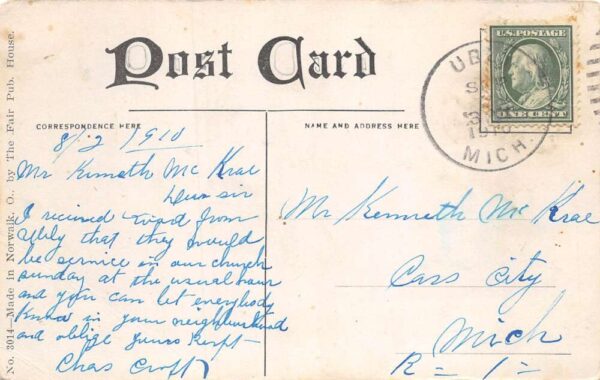 Post Card
CORRESPONDENCE HERE
NAME AND ADDRESS HERE
8/2 1910
Mr Kenneth Mc Krae
Dear sir
I recieved word from
Ubly that they would
be service in our church
sunday at the usual hour
and you can let everybody
know in your neighbourhood
and oblige yours Respt
Chas Croft
Mr Kenneth Mc Krae
Cass City
Mich
R - 1 -
U.S. POSTAGE
ONE CENT
UB
MICH.
No. 3014—Made in Norwalk, O., by The Fair Pub. House.